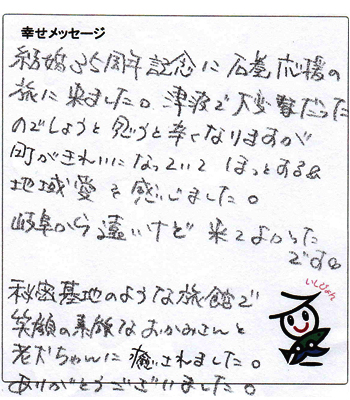 幸せメッセージ
結婚35周年記念に石巻応援の
旅に来ました。津波で大変だった
のでしょうと思うと辛くなりますが
町がきれいになっていてほっとする&
地域愛を感じました。
岐阜から遠いけど来てよかった
です。
いしぴょん
秘密基地のような旅館で
笑顔の素敵なおかみさんと
老犬ちゃんに癒されました。
ありがとうございいました。